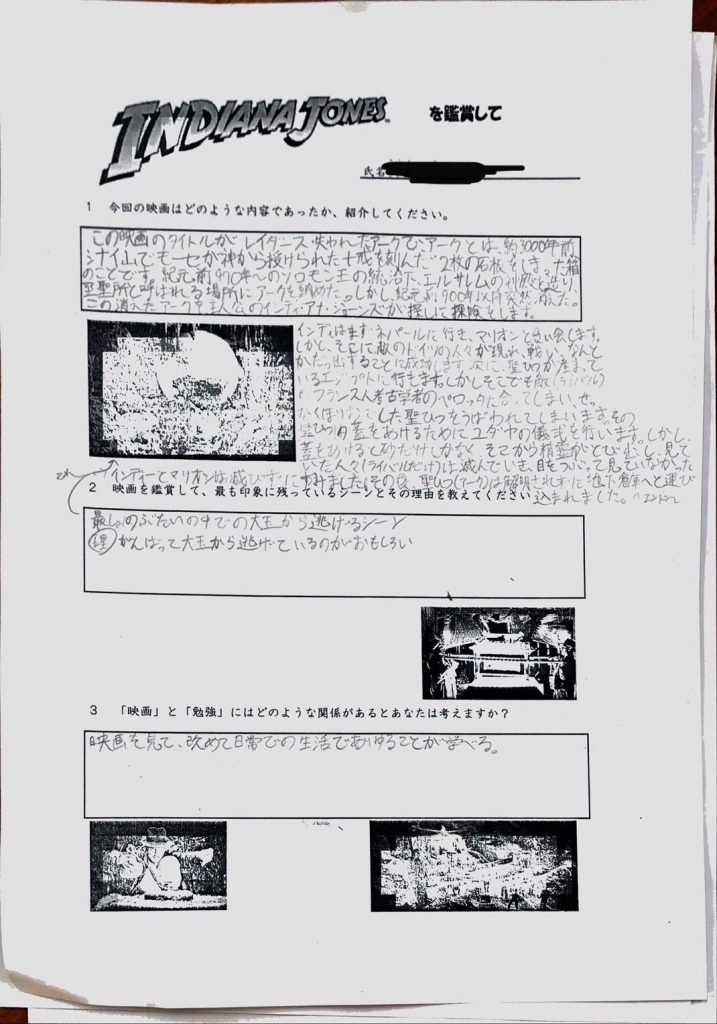 INDIANA JONES
を鑑賞して
氏名
1 今回の映画はどのような内容であったか、紹介してください。
この映画のタイトルが レイダース 失われたアークで、アークとは、約3000年前
シナイ山でモーセが神から授けられた十戒を刻んだ 2枚の石板をしまった箱
のことです。紀元前900年へのソロモン王の統治下、エルサレムの
至聖所と呼ばれる場所にアークを納めた。しかし、紀元前900年以降突然消えた。
この消えたアークを主人公のインディアナ・ジョーンズが探しに探険します。
インディはまずネパールに行き、マリオンと出い会します。
しかし、そこに敵のドイツの人々が現れ、戦い、なんと
かだっ出することに成功します。次に、聖ひつが埋まって
いるエジプトに行きます。しかしそこでも敵(ライバル)
フランス人考古学者のベロックに合ってしまい、せ
した聖ひつをうばわれてしまいます。その
聖ひつの蓋をあけるためにユダヤの儀式を行います。しかし、
蓋をあけると砂だけしかなく、そこから精霊がとび出し、見て
いた人々(ライバルだけ)は滅んでいき、目をつぶって見ていなかった
インディーとマリオンは滅びずにすみました。その後、聖ひつ(アーク)は解明されずに地下倉庫へと運び
込まれました。
2 映画を鑑賞して、最も印象に残っているシーンとその理由を教えてください
最しょのぶたいの中での大玉から逃げるシーン
理 がんばって大玉から逃げているのがおもしろい
3 「映画」と「勉強」にはどのような関係があるとあなたは考えますか？
映画を見て、改めて日常での生活であらゆることが学べる。